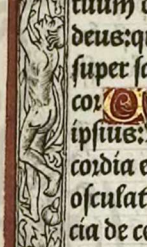 tuum d
deus: q
super sc
cor
ipsius:
cordia e
osculat
cia de ce